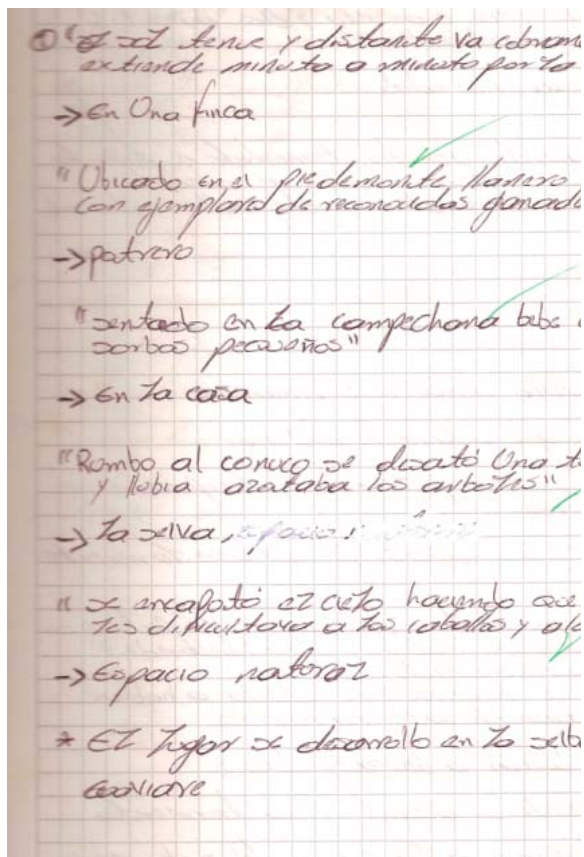 ① "El sol tenue y distante va cobran
extiende minuto a minuto por la
→ En Una finca
"Ubicado en el piedemonte llanero
con ejemplares de reconocidas ganad
→ potrero
"sentado en la campechana bebe
sorbos pequeños"
→ En la casa
"Rumbo al conuco se desató Una t
y llubia azotaba los arboles"
→ la selva,
"se encapotó el cielo haciendo que
les dificultara a los caballos y
→ Espacio natural
* El lugar se desarrollo en la selb